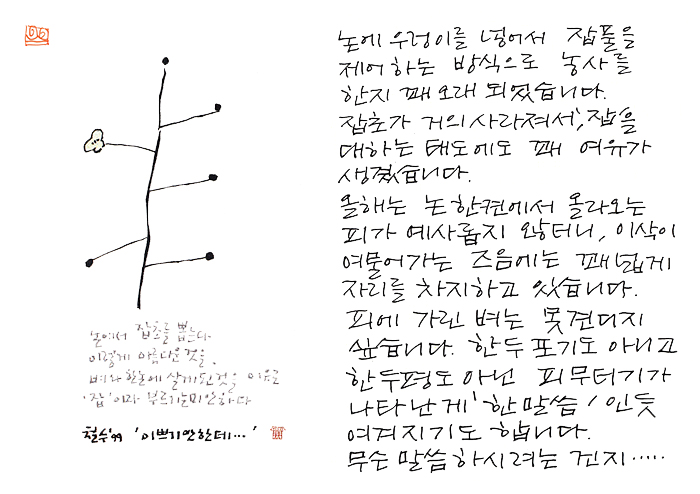 논에서 잡초를 뽑는다
이렇게 아름다운 것을,
벼와 한논에 살게된것을 이유로
'잡'이라 부르기 미안하다
철수'99 '이쁘기만한데…'
논에 우렁이를 넣어서 잡풀을
제어하는 방식으로 농사를
한지 꽤 오래 되었습니다.
잡초가 거의 사라져서, '잡'을
대하는 태도에도 꽤 여유가
생겼습니다.
올해는 논 한켠에서 올라오는
피가 예사롭지 않터니, 이삭이
여물어가는 즈음에는 꽤 넓게
자리를 차지하고 있습니다.
피에 가린 벼는 못견디지
싶습니다. 한두 포기도 아니고
한두평도 아닌 피무더기가
나타난게 '한말씀' 인듯
여겨지기도 합니다.
무슨 말씀하시려는 건지…..